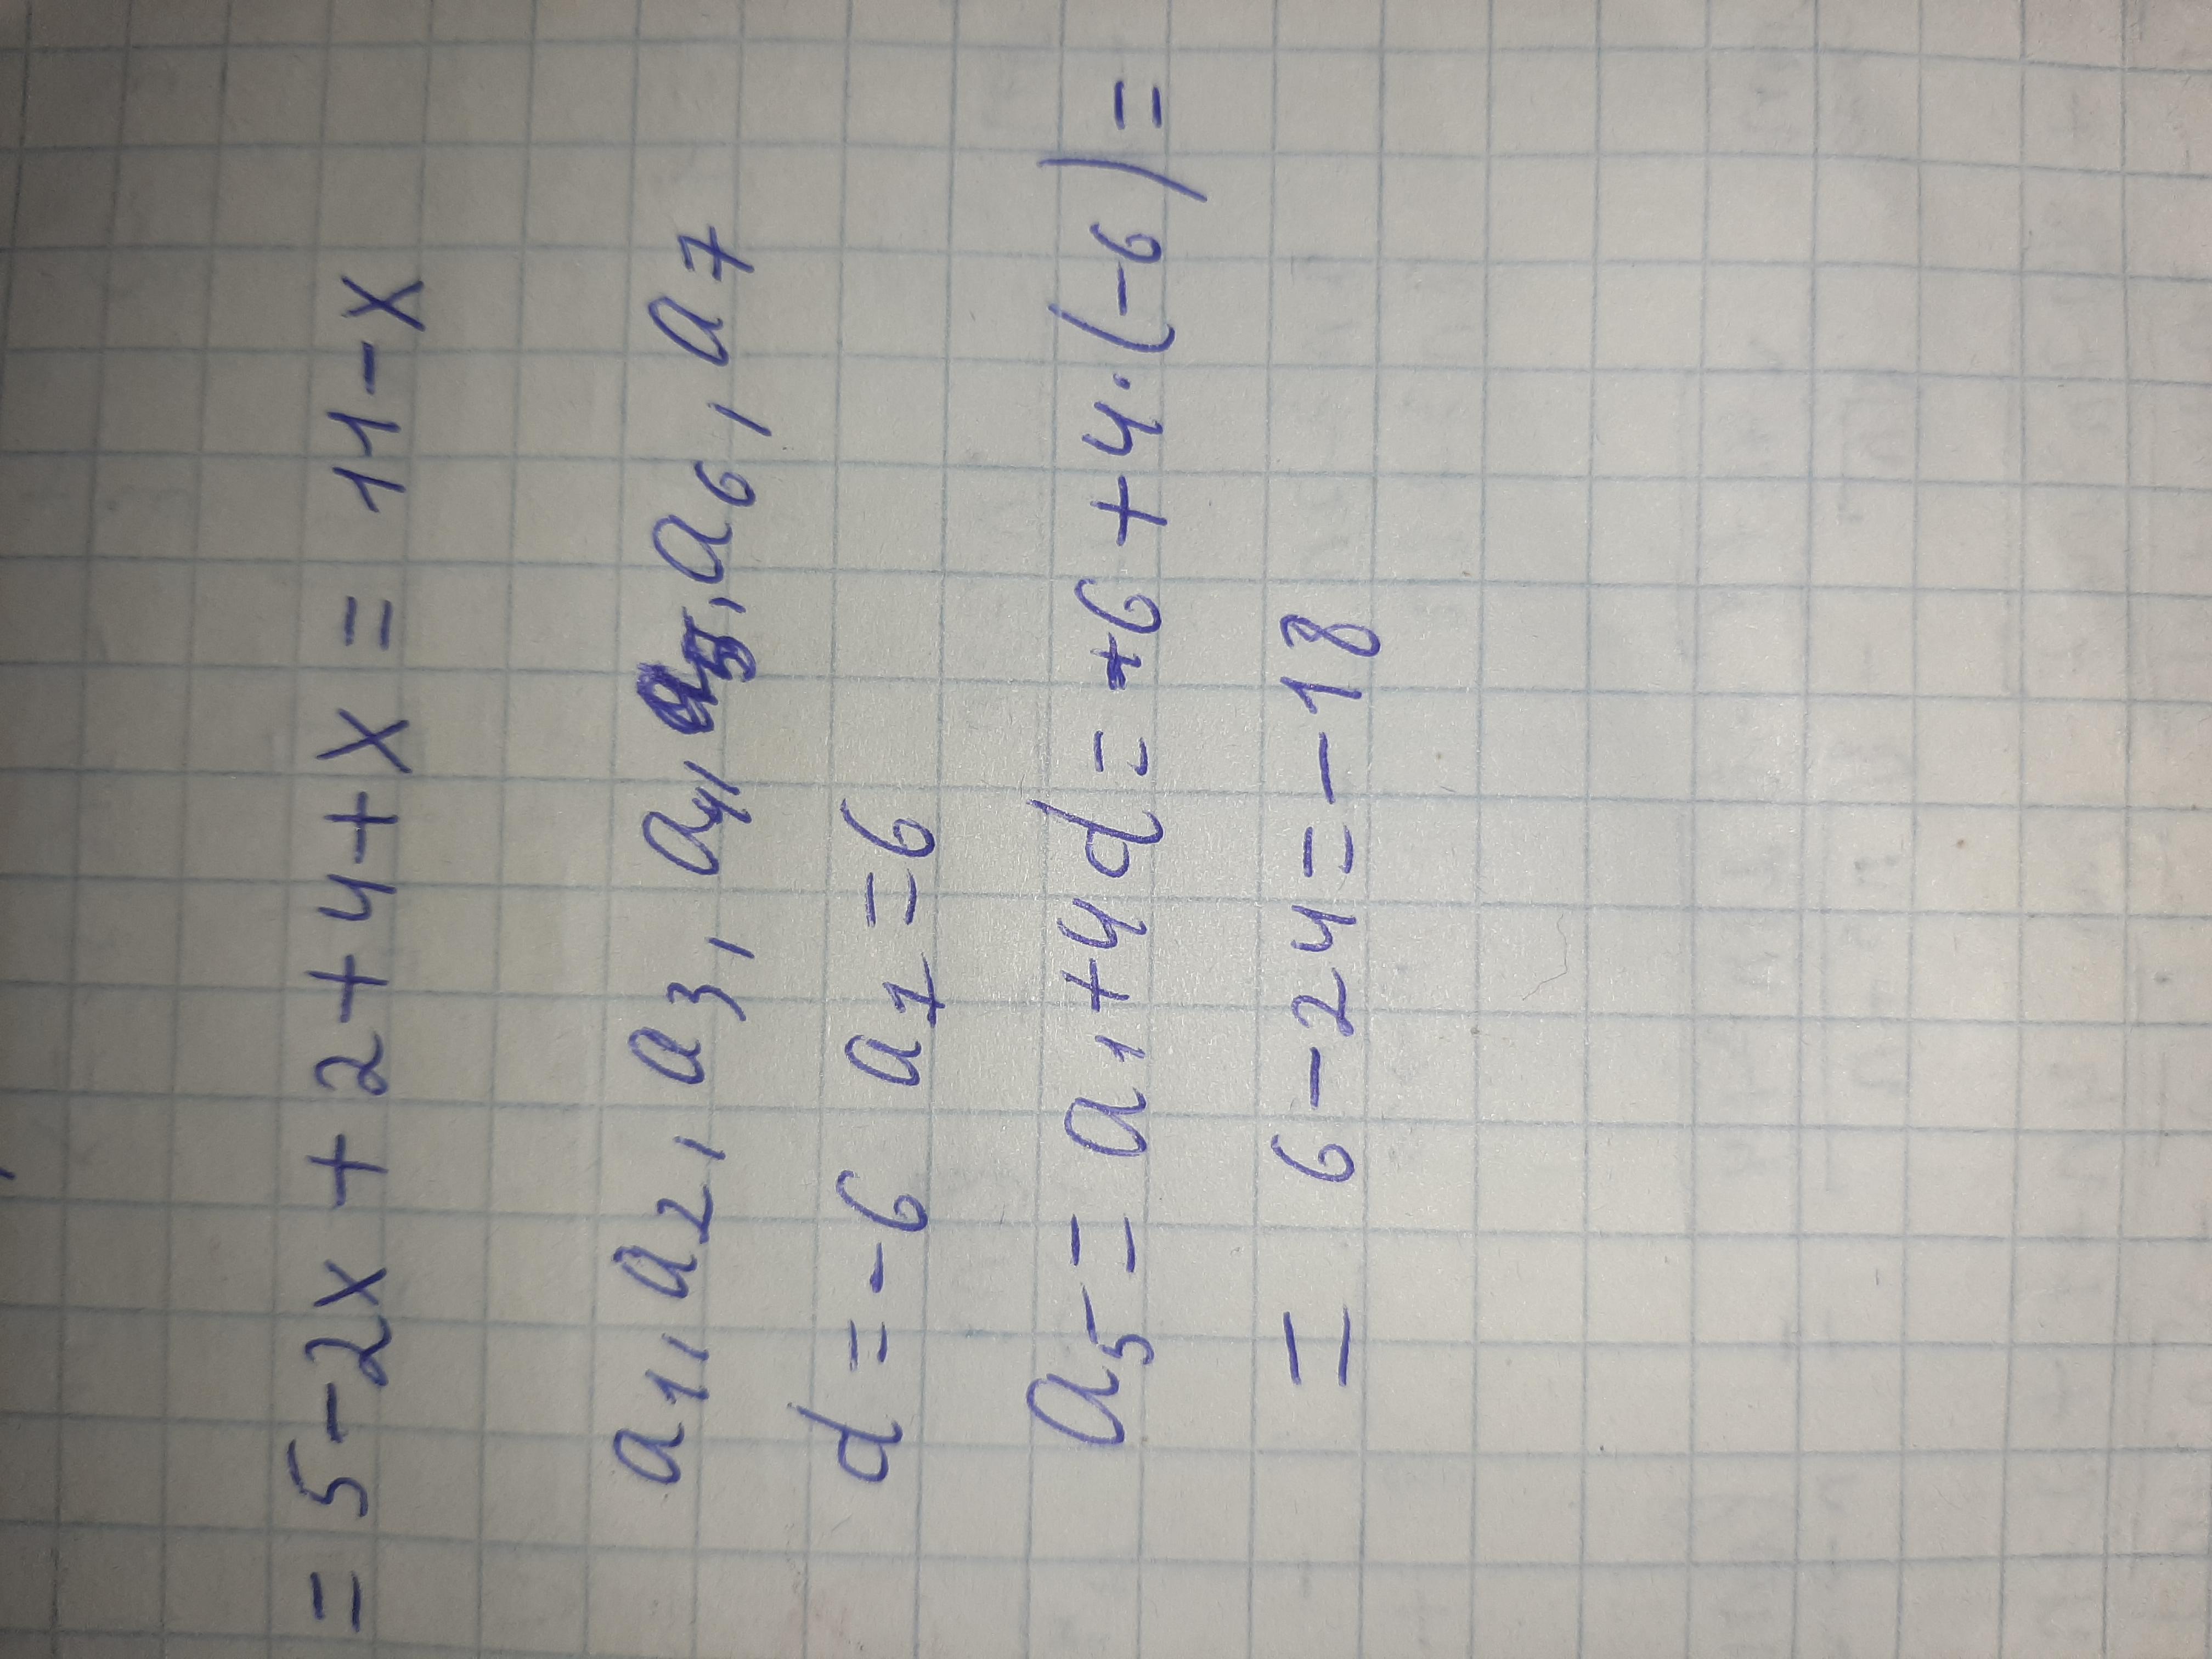 = 5-2x + 2+4+x = 11-x
a₁, a₂, a₃, a₄, a₅, a₆, a₇
d = -6 a₁ = 6
a₅ = a₁+4d = +6+4·(-6) =
= 6-24 = -18